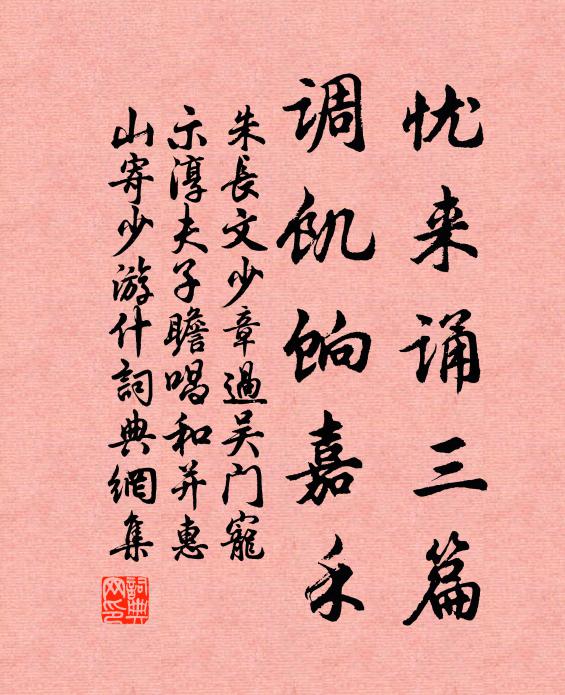 忧来诵三篇
调饥饷嘉禾
朱長文少章過吴门寵
示淳夫子瞻唱和并惠
山寄少游什詞典網集
詞典网印